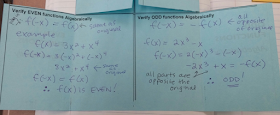 Verify EVEN functions Algebraically
f(-x) = f(x) → same as original
example
f(x) = 3x² + x⁴
f(-x) = 3(-x)² + (-x)⁴
3x² + x⁴ ← same as original
f(-x) = f(x)
∴ f(x) is EVEN!
Verify ODD functions Algebraically
f(-x) = -f(x) all opposite of original
f(x) = 2x³ - x
f(-x) = 2(-x)³ - (-x)
-2x³ + x = -f(x)
all parts are opposite the original
∴ ODD!